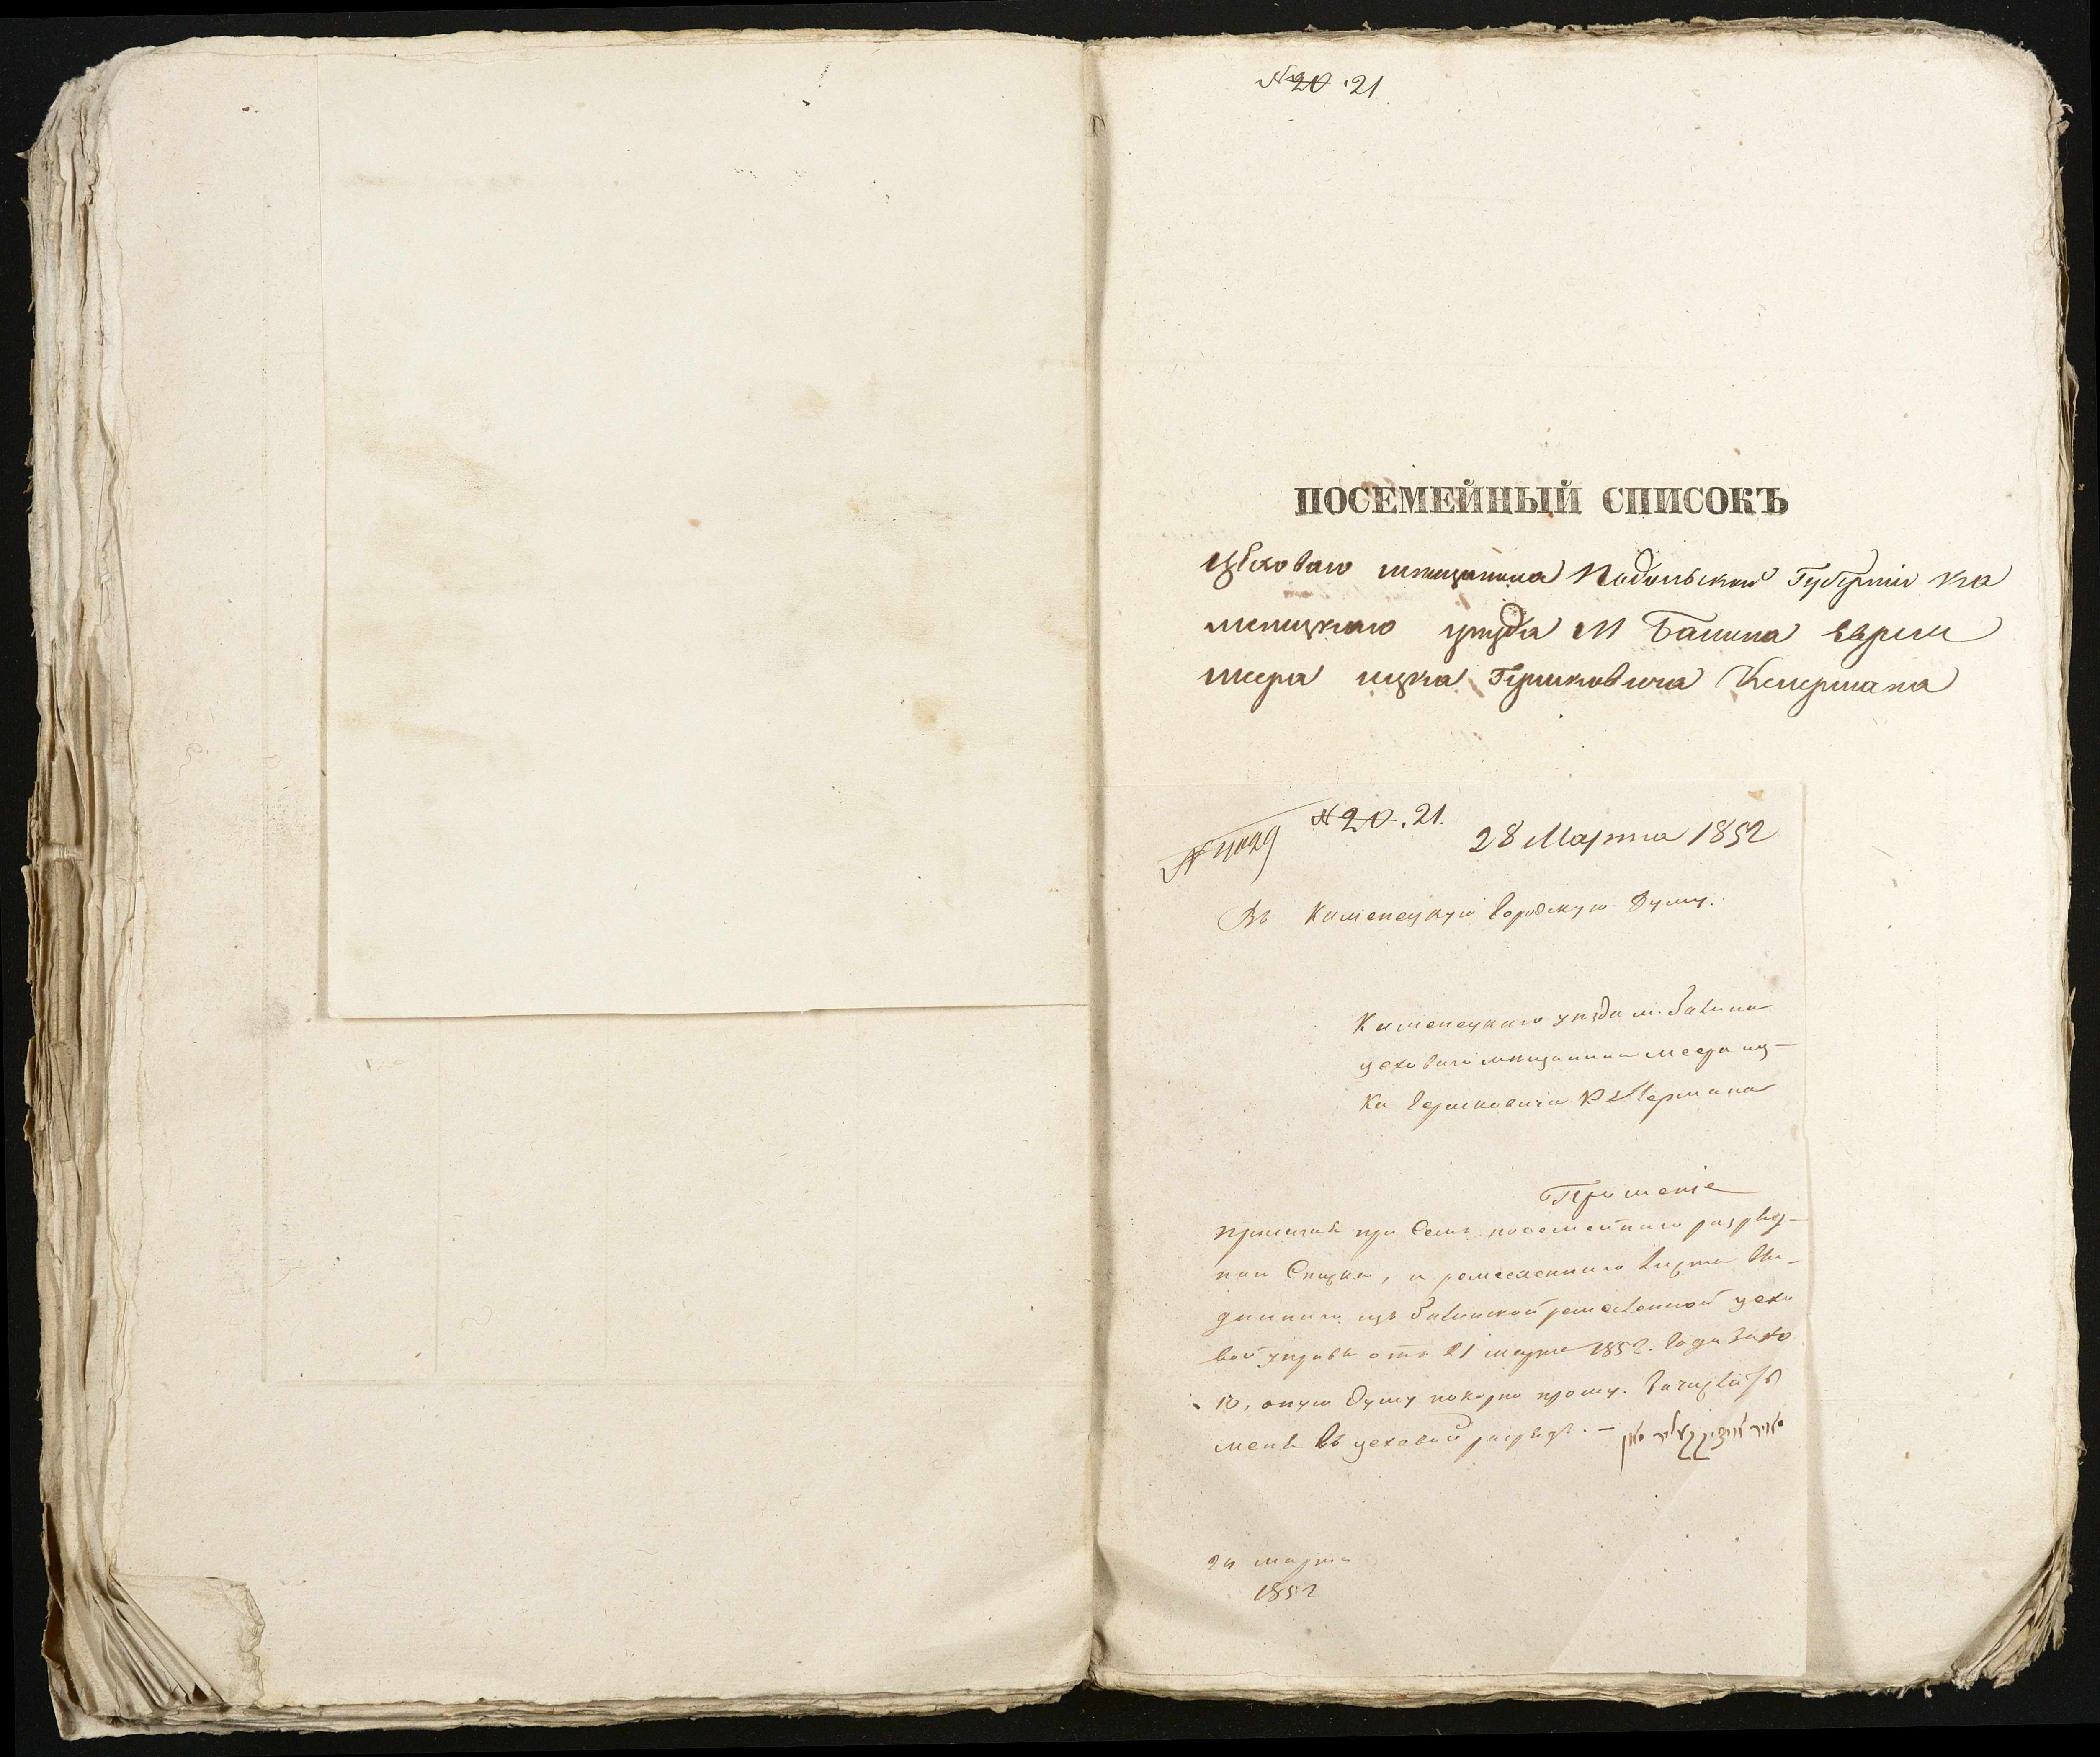 № 20. 21
ПОСЕМЕЙНЫЙ СПИСОКЪ
Цѣховаго мѣщанина Подольской Губерніи Ка
менецкаго уѣзда М Балина Еврея
Меера ицка Гершковича Келермана
№ 20. 21.
28 Марта 1852
Въ Каменецкую Городскую Думу.
Каменецкаго уѣзда м. Балина
цеховаго мѣщанина Меера иц-
ка Гершковича Келермана
Прошеніе
при семъ посемейнаго
наго Списка, и ремесленнаго
изъ Балинской ремесленной цехо
вой управы отъ 21 марта 1852. Года за №
10, оную Думу покорно прошу. Зачислать
меня въ цеховой разрядъ. —
марта
1852